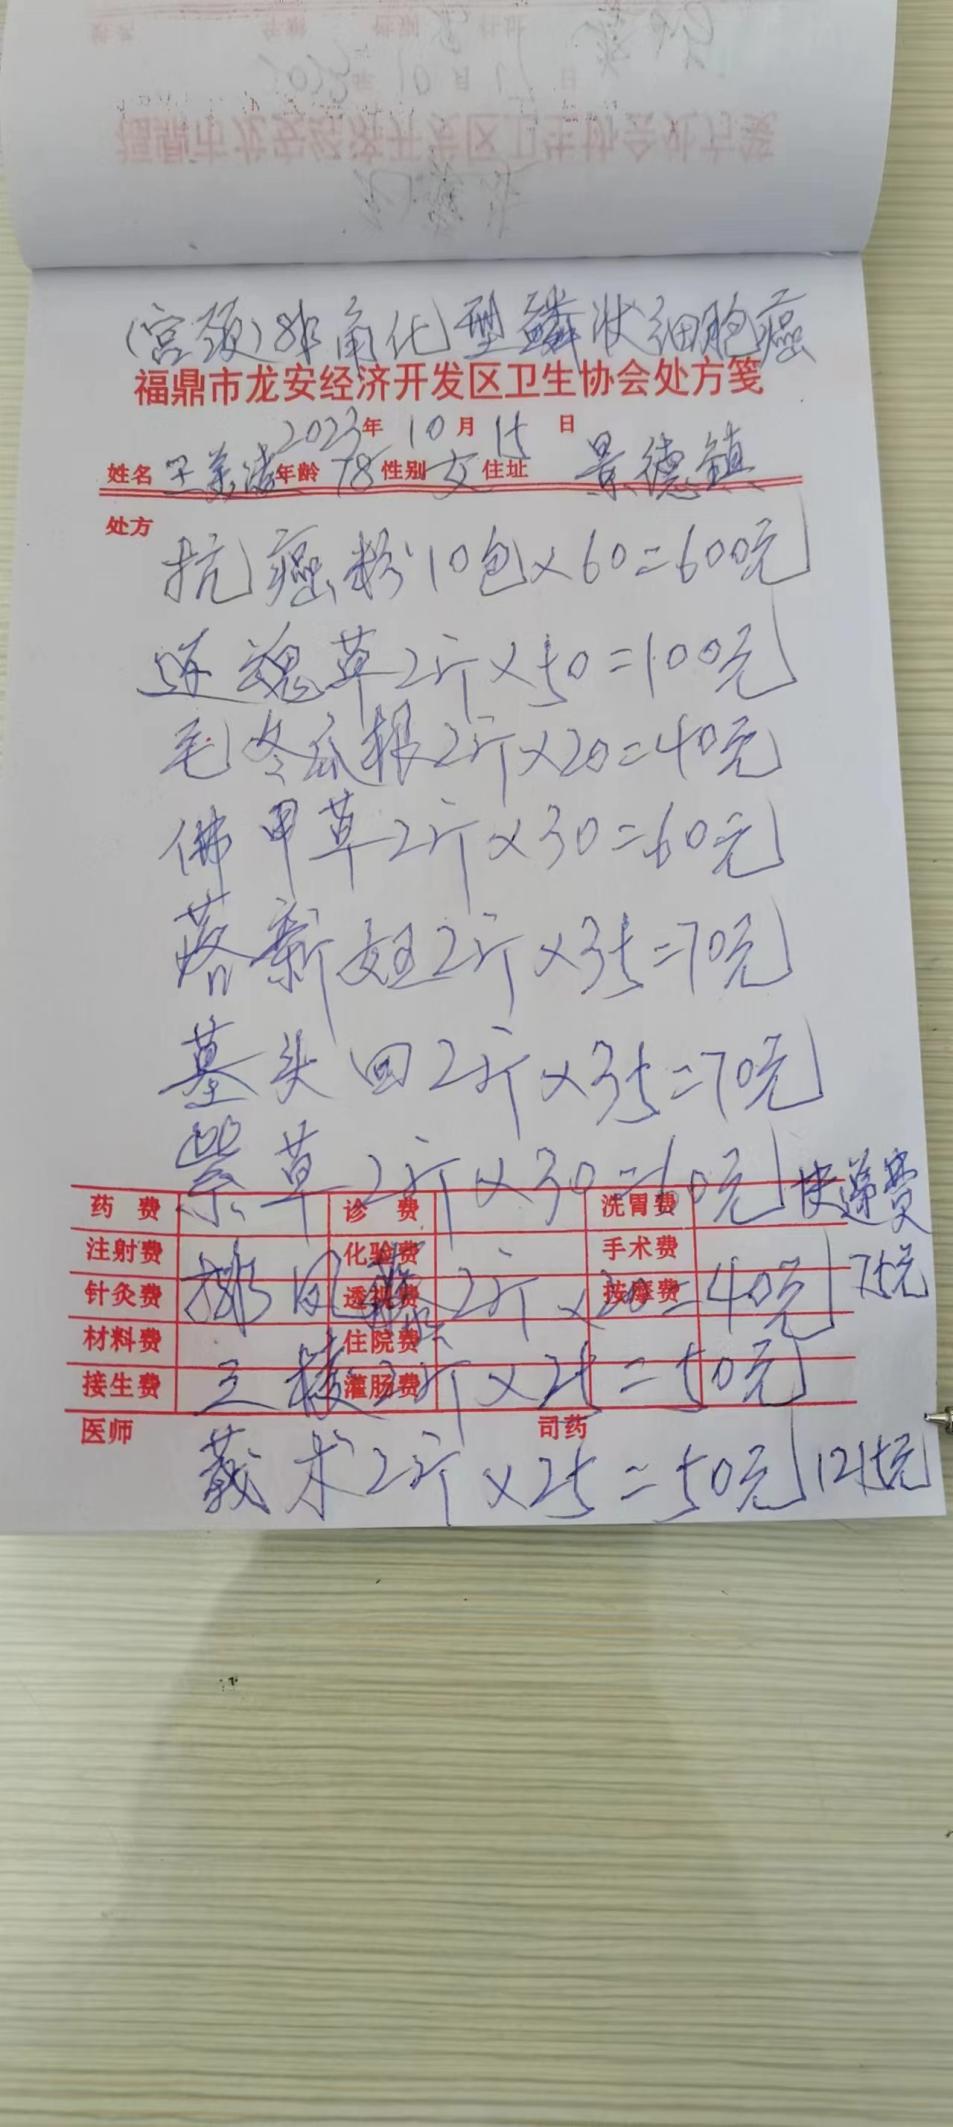 (宫颈)非角化型鳞状细胞癌
福鼎市龙安经济开发区卫生协会处方笺
2023年 10月 15日
姓名 年龄 78 性别 女 住址 景德镇
处方
抗癌粉10包×60=600元
还魂草2斤×50=100元
毛冬瓜根2斤×20=40元
佛甲草2斤×30=60元
落新妇2斤×35=70元
墓头回2斤×35=70元
紫草2斤×30=60元 快递费
75元
药费 诊费 洗胃费
注射费 化验费 手术费
针灸费 透视费 按摩费
排风藤2斤×20=40元
材料费 住院费
接生费 灌肠费
三棱2斤×25=50元
医师 司药
莪术2斤×25=50元 1215元